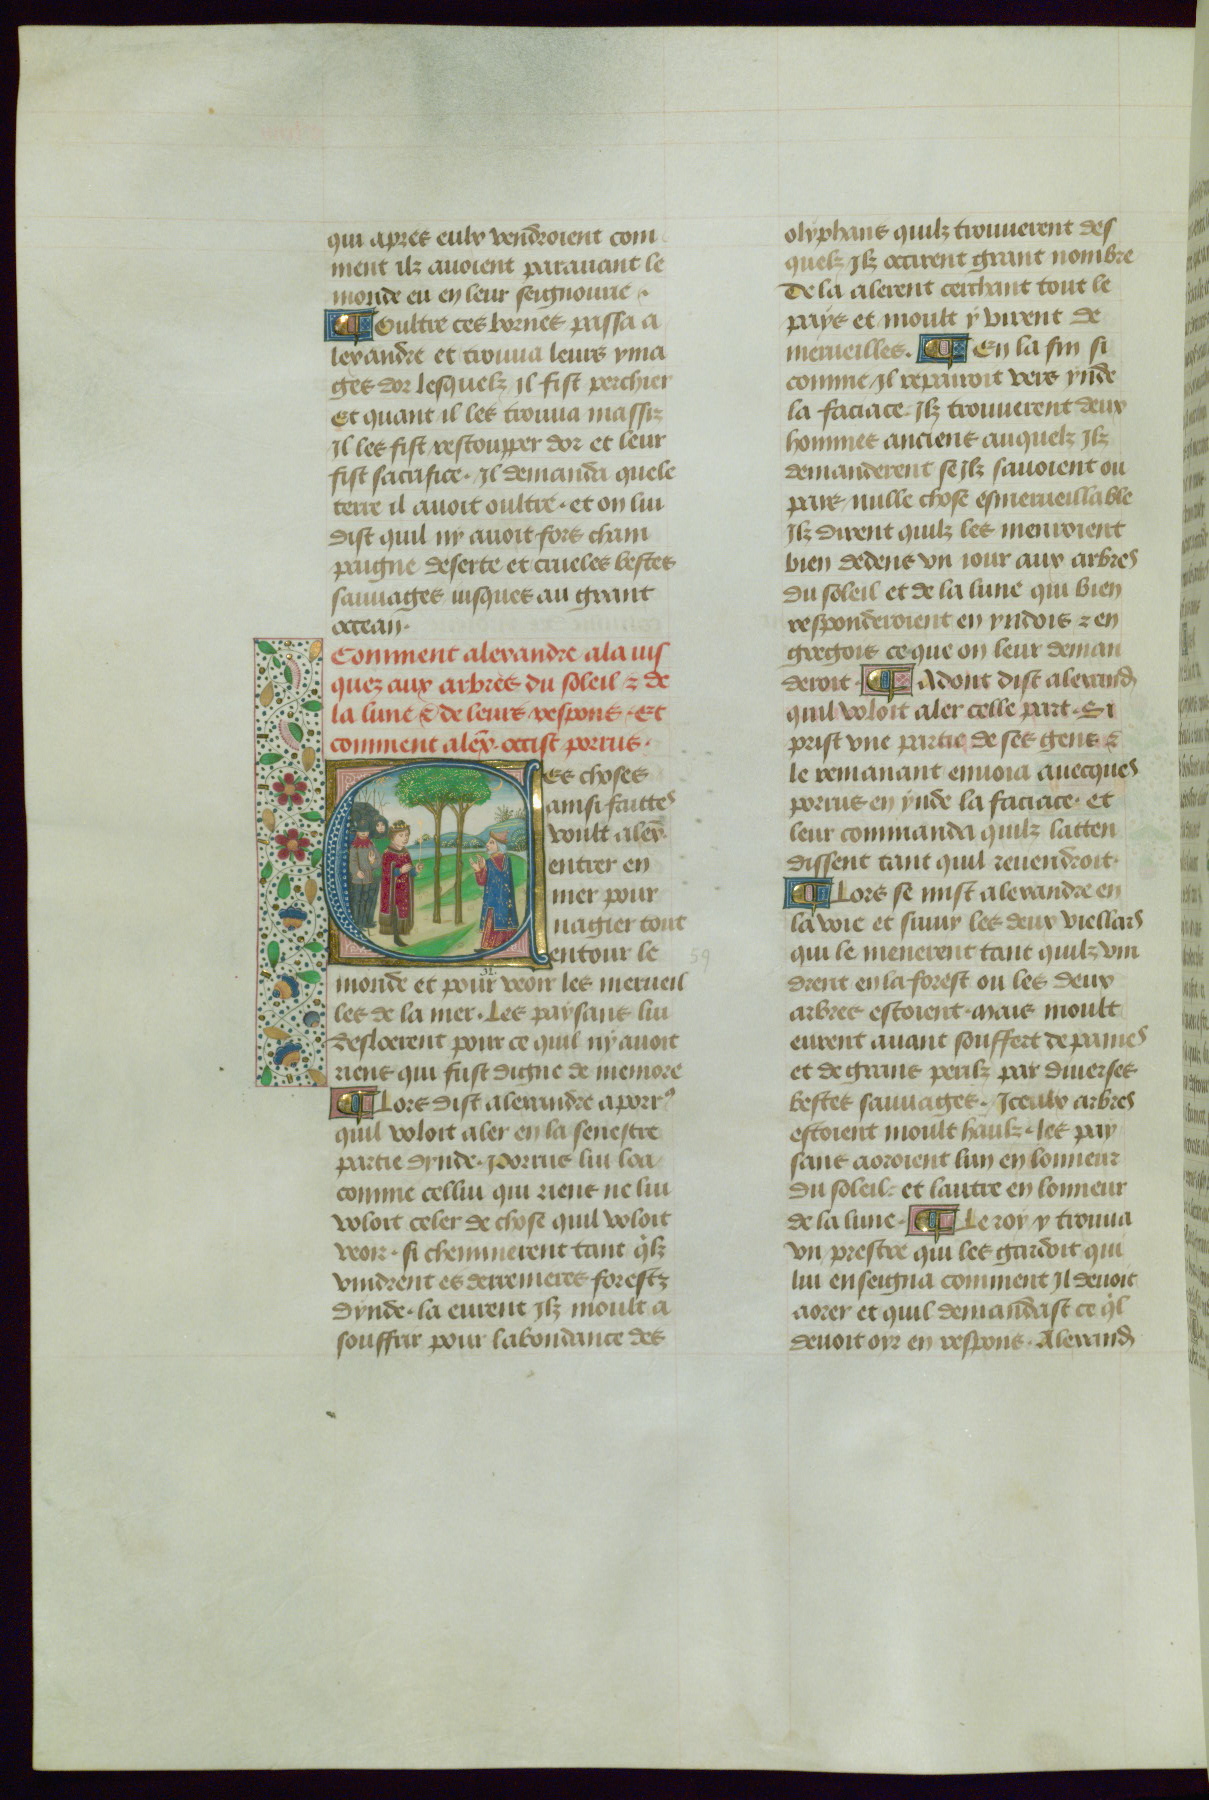 qui apres eulx vendroient com
ment ilz auoient parauant le
monde eu en leur seignourie .
¶ Oultre ces bornes passa a
lexandre et trouua leurs yma
ges dor lesquelz il fist perchier
Et quant il les trouua massiz
Il les fist restoupper dor et leur
fist sacrifice . Il demanda quele
terre il auoit oultre . et on lui
dist quil ny auoit fors cham
paigne deserte et crueles bestes
sauuages iusques au grant
occean .
Comment alexandre ala ius
quez aux arbres du soleil ⁊ de
la lune ⁊ de leurs respons . Et
comment alex̄ . occist porrus .
Ces choses
ainsi faittes
voult alex̄ .
entrer en
mer pour
nagier tout
entour le
monde et pour veoir les merueil
les de la mer . Les paysans lui
desloerent pour ce quil ny auoit
riens qui fust digne de memore
¶ Lors dist alexandre a porrꝰ
quil voloit aler en la senestre
partie dynde . Porrus lui loa
comme cellui qui riens ne lui
voloit celer de chose quil voloit
veoir . si cheminerent tant q̉lz
vindrent es derrenieres forestz
dynde . la eurent Ilz moult a
souffrir pour labondance des
olyphans quilz trouuerent des
quelz Ilz occirent grant nombre
De la alerent cerchant tout le
pays et moult y virent de
merueilles . ¶ En la fin si
comme Il repairoit vers ynde
la faciace . Ilz trouuerent deux
hommes anciens auquelz Ilz
demanderent se Ilz sauoient ou
pais nulle chose esmerueillable
Ilz dirent quilz les menroient
bien dedens vn iour aux arbres
du soleil et de la lune qui bien
responderoient en yndois ⁊ en
gregois ce que on leur deman
deroit . ¶ Adont dist alexand̉
quil voloit aler celle part . Si
prist vne partie de ses gens ⁊
le remanant enuoia auecques
porrus en ynde la faciace . et
leur commanda quilz latten
dissent tant quil reuendroit .
¶ Lors se mist alexandre en
la voie et siuuy les deux viellars
qui le menerent tant quilz vin
drent en la forest ou les deux
arbres estoient . mais moult
eurent auant souffert de paines
et de grans perilz par diuerses
bestes sauuages . Iceulx arbres
estoient moult haulz . les pay
sans aoroient lun en lonneur
du soleil . et lautre en lonneur
de la lune . ¶ Le roy y trouua
vn prestre qui les gardoit qui
lui enseigna comment Il deuoit
aorer et quil demandast ce q̉l
deuoit oyr en respons . Alexand̉
59